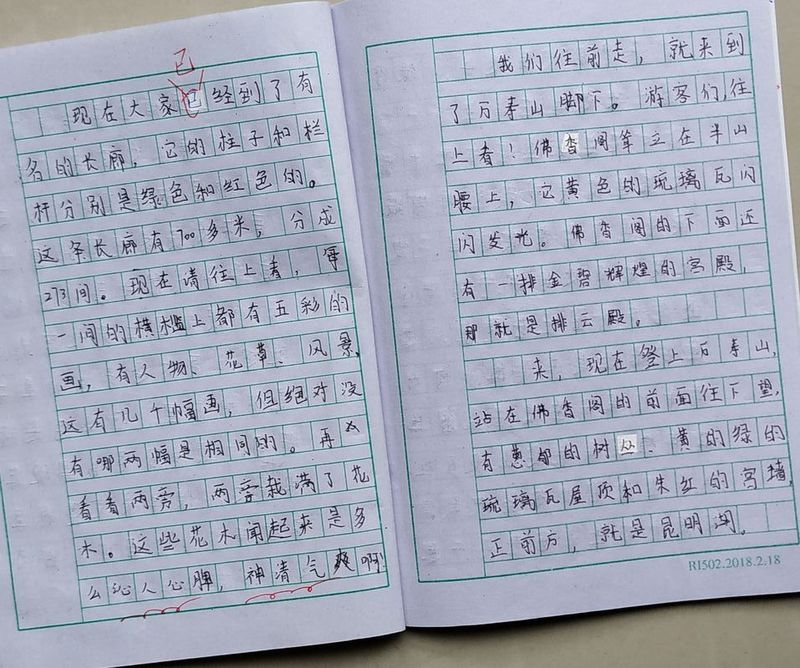 已
现在大家已经到了有
名的长廊，它的柱子和栏
杆分别是绿色和红色的。
这条长廊有700多米，分成
273间。现在请往上看，每
一间的横槛上都有五彩的
画，有人物、花草、风景，
这有几千幅画，但绝对没
有哪两幅是相同的。再
看看两旁，两旁栽满了花
木。这些花木闻起来是多
么沁人心脾，神清气爽啊！
我们往前走，就来到
了万寿山脚下。游客们，往
上看！佛香阁耸立在半山
腰上，它黄色的琉璃瓦闪
闪发光。佛香阁的下面还
有一排金碧辉煌的宫殿，
那就是排云殿。
来，现在登上万寿山，
站在佛香阁的前面往下望，
有葱郁的树丛、黄的绿的
琉璃瓦屋顶和朱红的宫墙，
正前方，就是昆明湖。
RI502.2018.2.18